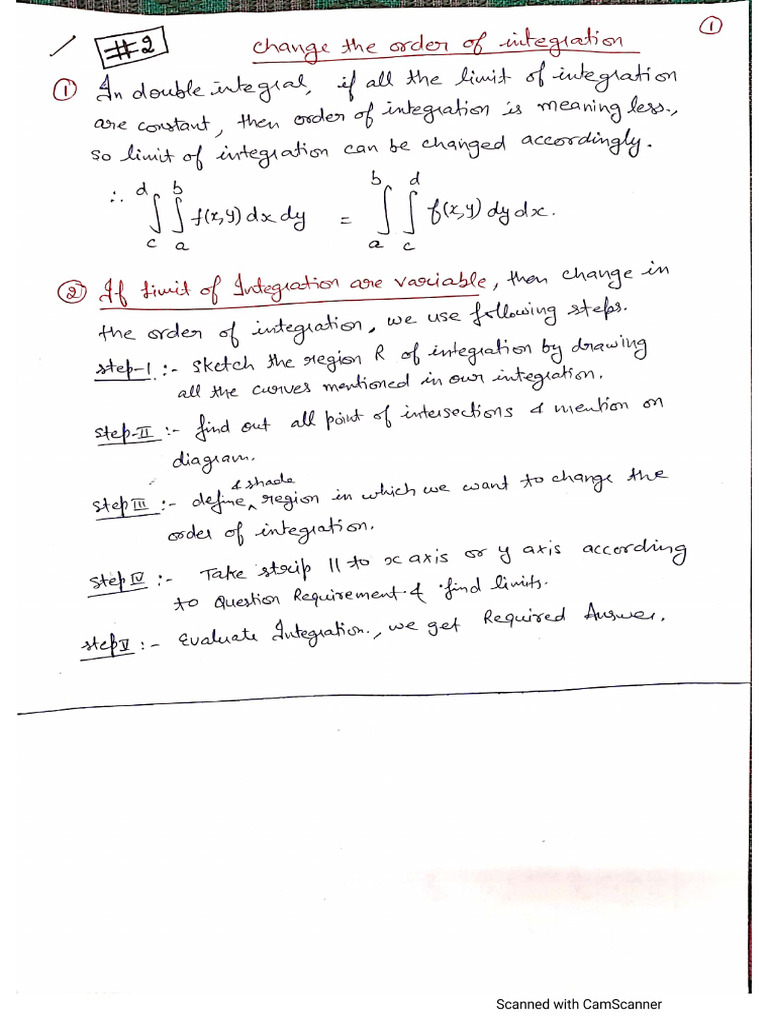 ①
#2 Change the order of integration
① In double integral, if all the limit of integration
are constant, then order of integration is meaning less.,
so limit of integration can be changed accordingly.
∴ ∫_c^d ∫_a^b f(x,y) dx dy = ∫_a^b ∫_c^d f(x,y) dy dx.
② If limit of Integration are variable, then change in
the order of integration, we use following steps.
step-I :- Sketch the region R of integration by drawing
all the curves mentioned in our integration.
step-II :- find out all point of intersections & mention on
diagram.
& shade
step III :- define ^ region in which we want to change the
order of integration.
step IV :- Take strip || to x axis or y axis according
to Question Requirement & find limits.
step V :- Evaluate Integration., we get Required Answer.
Scanned with CamScanner